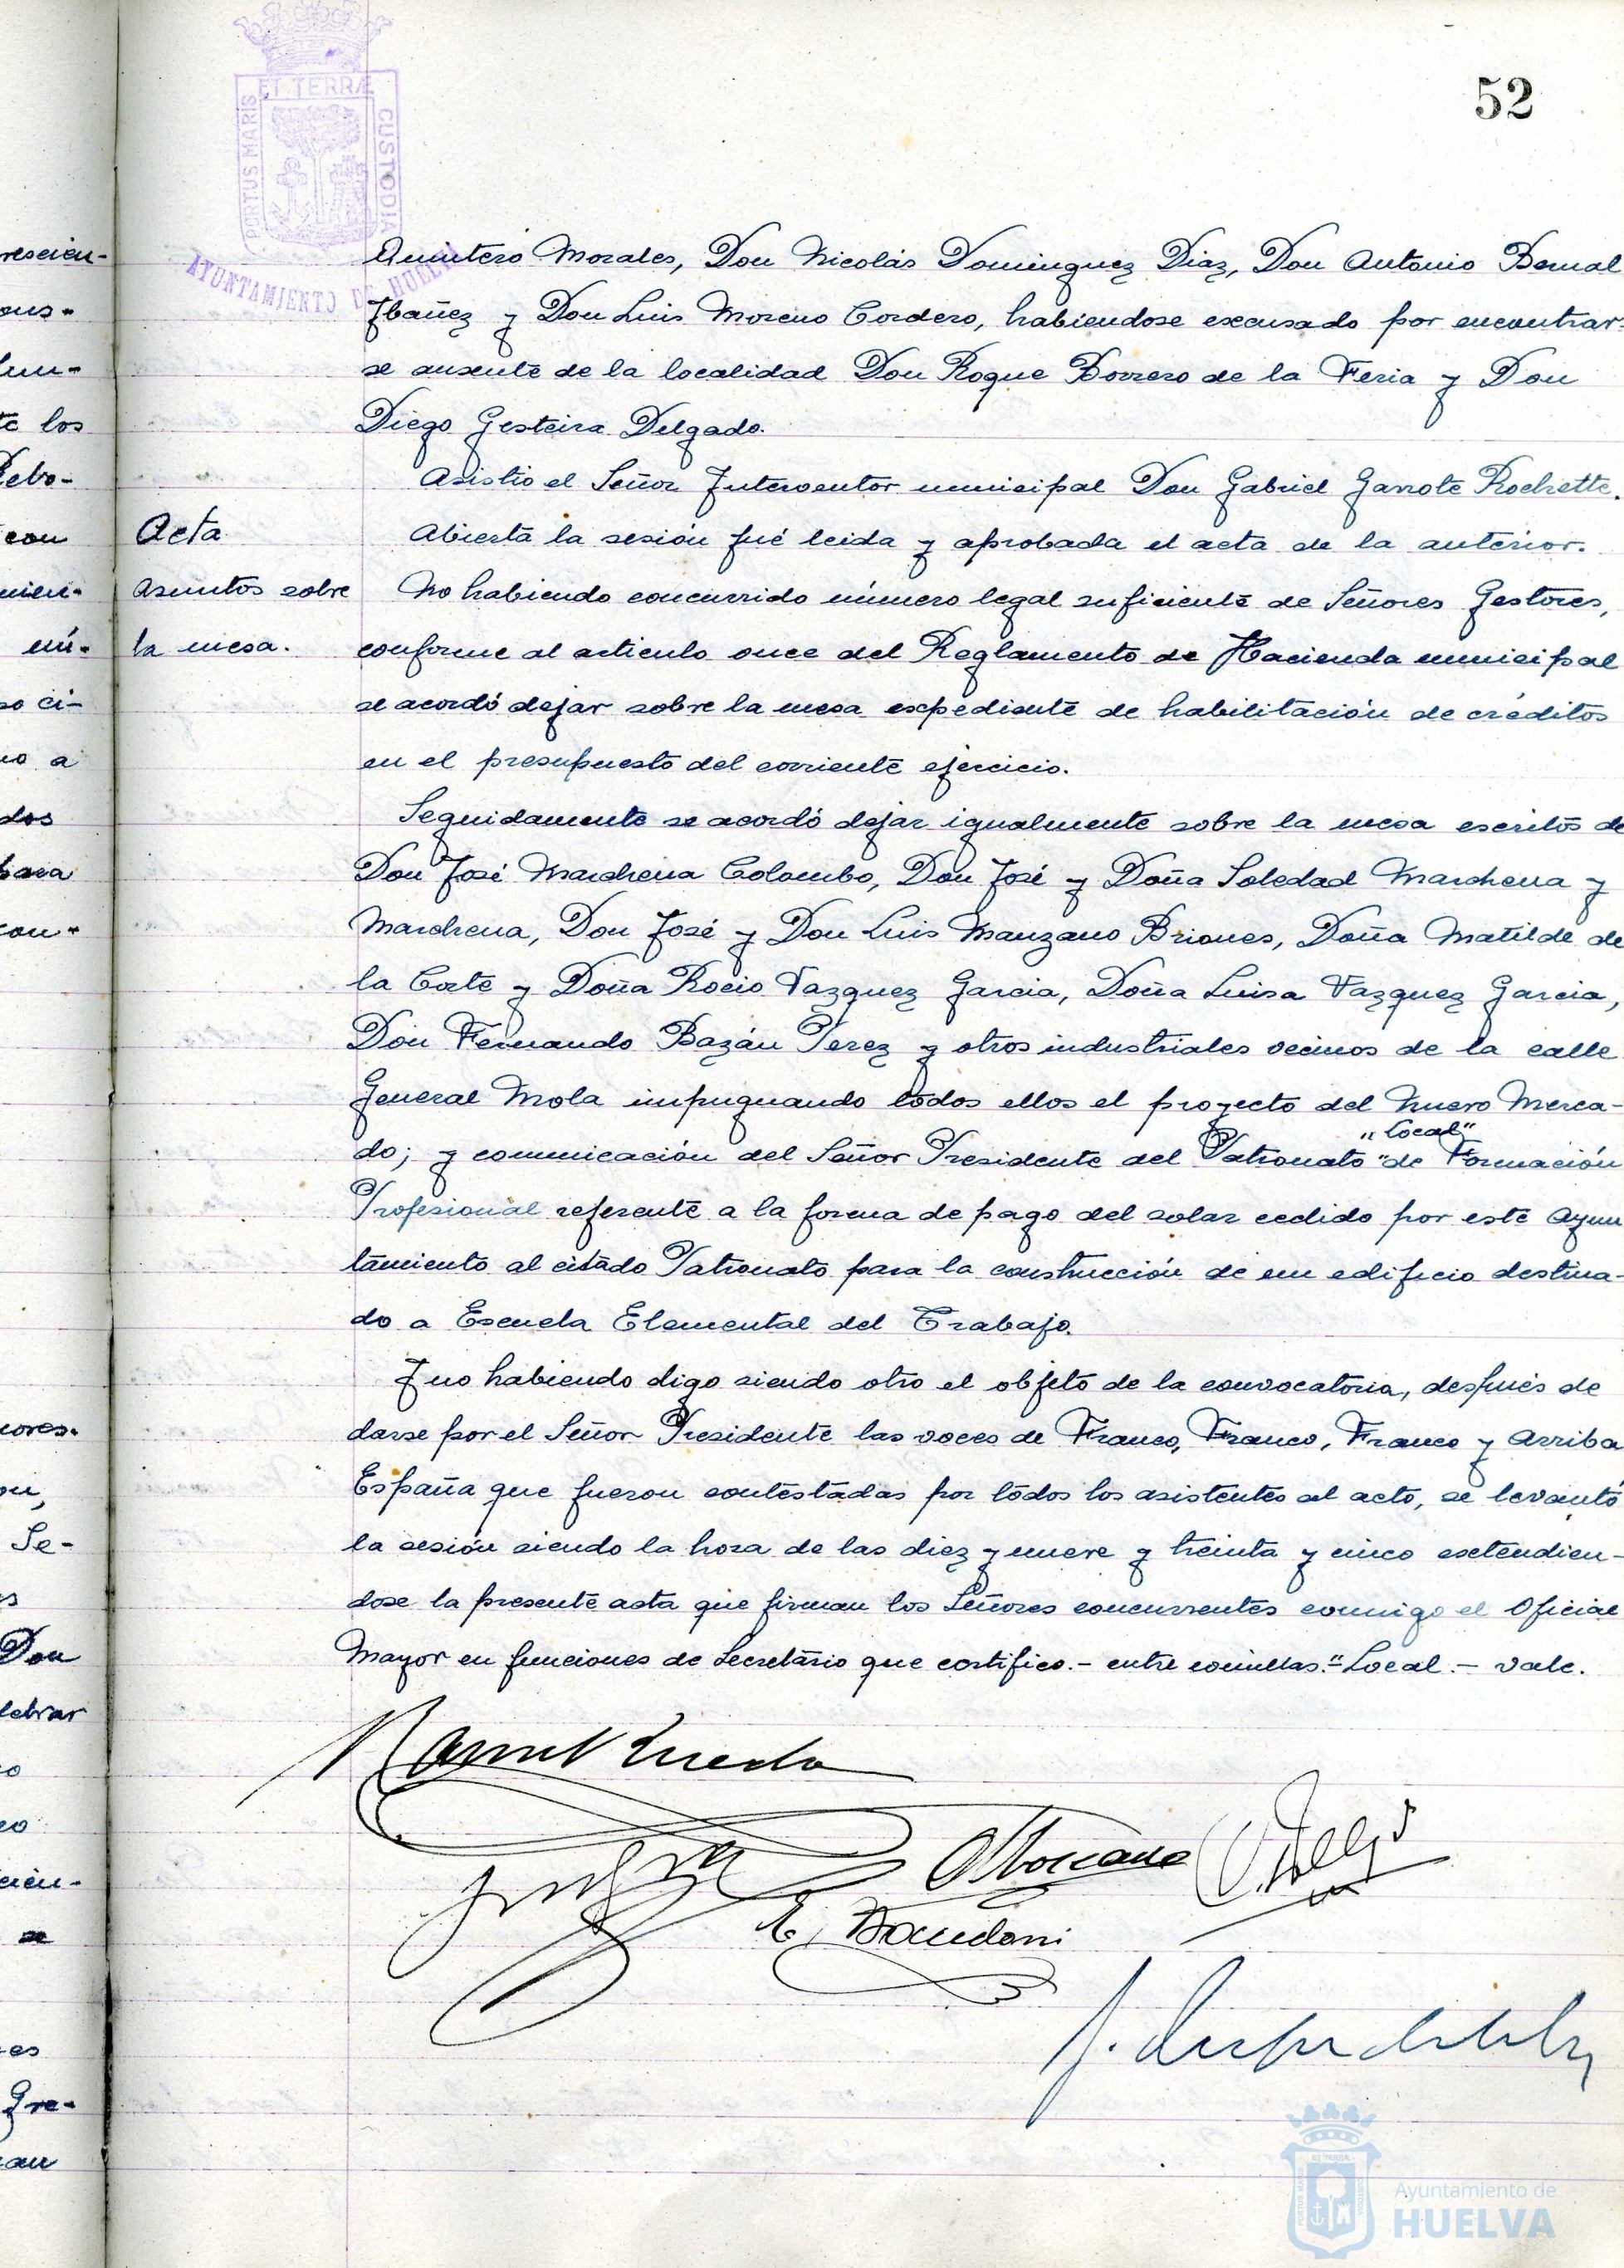 52
PORTUS MARIS ET TERRÆ CUSTODIA
AYUNTAMIENTO DE HUELVA
Quintero Morales, Don Nicolás Dominguez Diaz, Don Antonio Bernal
Ibañez y Don Luis Moreno Cordero, habiendose excusado por encontrar-
se ausente de la localidad Don Roque Borrero de la Feria y Don
Diego Gesteira Delgado.
Asistio el Señor Interventor municipal Don Gabriel Garrote Rochette.
Acta.
Abierta la sesión fué leida y aprobada el acta de la anterior.
Asuntos sobre
la mesa.
No habiendo concurrido número legal suficiente de Señores Gestores,
conforme al articulo once del Reglamento de Hacienda municipal
se acordó dejar sobre la mesa expediente de habilitación de créditos
en el presupuesto del corriente ejercicio.
Seguidamente se acordó dejar igualmente sobre la mesa escritos de
Don José Marchena Colombo, Don José y Doña Soledad Marchena y
Marchena, Don José y Don Luis Manzano Briones, Doña Matilde de
la Corte y Doña Rocio Vazquez Garcia, Doña Luisa Vazquez Garcia,
Don Fernando Bazán Perez y otros industriales vecinos de la calle
General Mola impugnando todos ellos el proyecto del Nuevo Merca-
do; y comunicación del Señor Presidente del Patronato "Local" de Formación
Profesional referente a la forma de pago del solar cedido por este Ayun
tamiento al citado Patronato para la construcción de un edificio destina-
do a Escuela Elemental del Trabajo.
Y no habiendo digo siendo otro el objeto de la convocatoria, después de
darse por el Señor Presidente las voces de Franco, Franco, Franco y Arriba
España que fueron contestadas por todos los asistentes al acto, se levantó
la sesión siendo la hora de las diez y nueve y treinta y cinco extendien-
dose la presente acta que firman los Señores concurrentes conmigo el Oficial
Mayor en funciones de Secretario que certifico.- entre comillas."Local.- vale.
Ayuntamiento de
HUELVA
rescien-
ous-
te los
Rebo-
con
mien-
mú-
so ci-
no a
dos
con-
Se-
Don
lebrar
se
Gre-